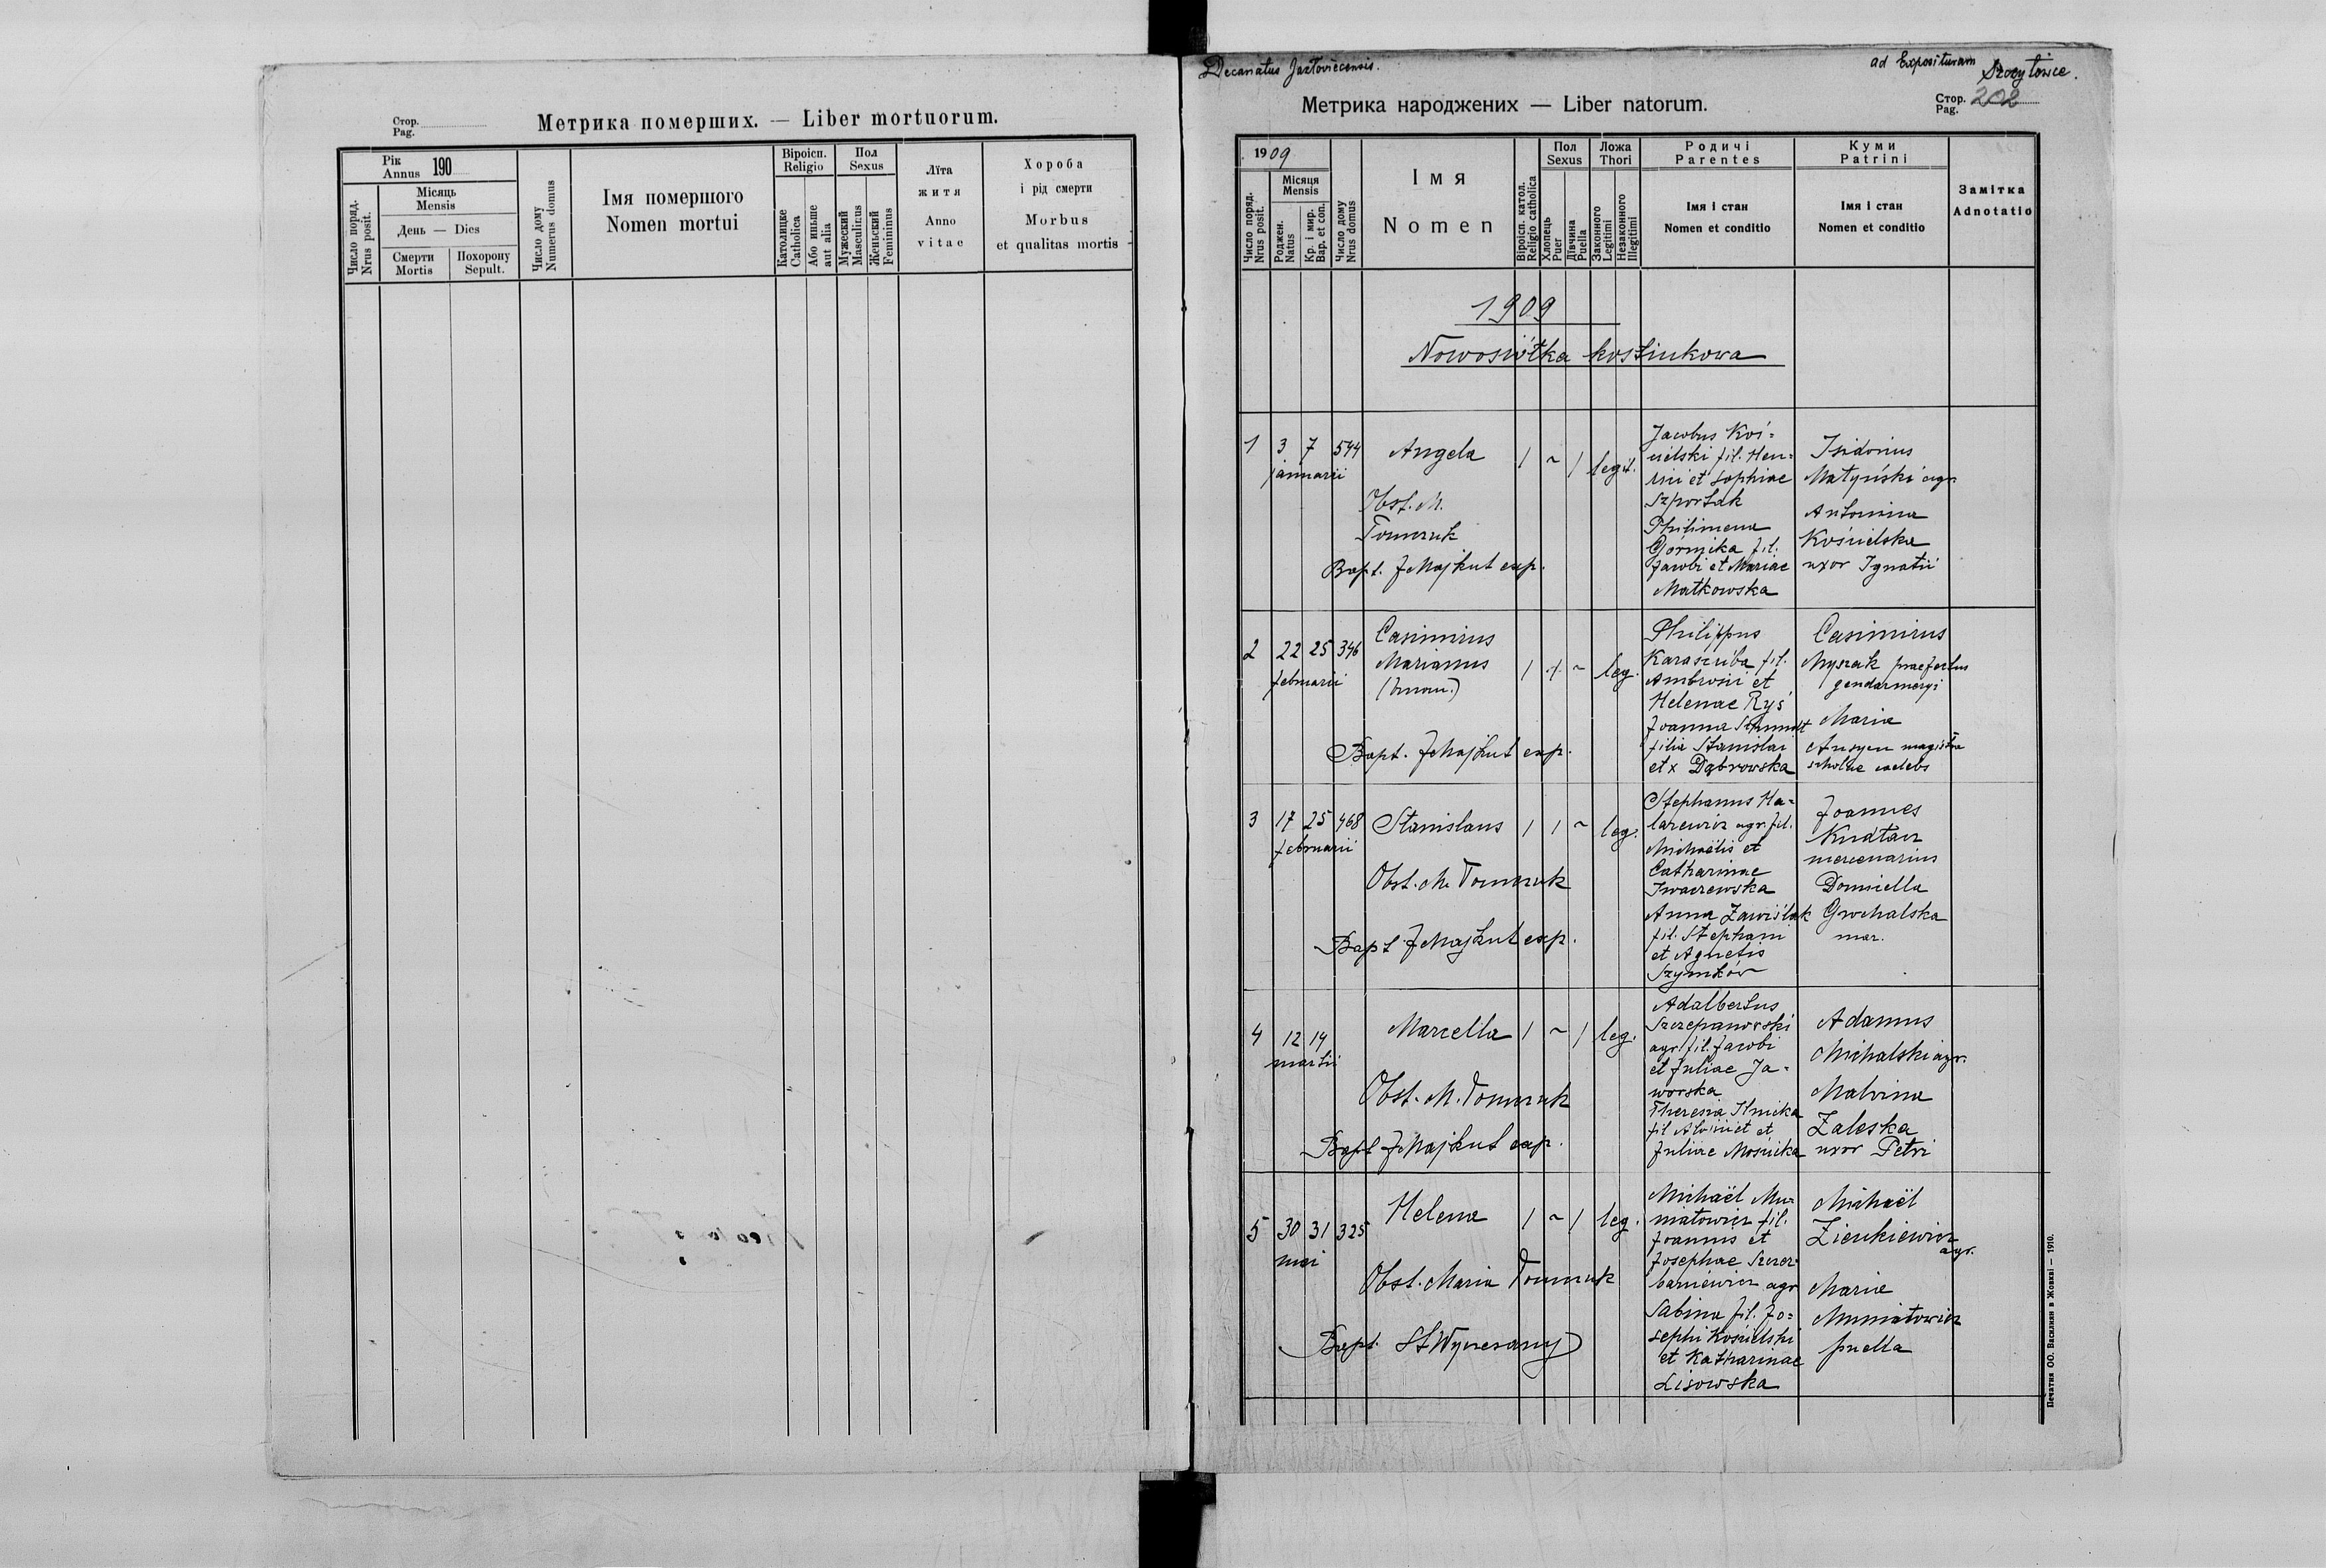 Стор.
Pag.
Метрика померших. — Liber mortuorum.
Рік
Annus 190
Місяць
Mensis
День — Dies
Смерти
Mortis
Похорону
Sepult.
Число поряд.
Nrus posit.
Число дому
Numerus domus
Імя помершого
Nomen mortui
Віроісп.
Religio
Католицке
Catholica
Або иньше
aut alia
Пол
Sexus
Мужеский
Masculinus
Женьский
Femininus
Лїта
житя
Anno
vitae
Хороба
і рід смерти
Morbus
et qualitas mortis
Decanatus Jazłoviecensis.
ad Exposituram
Метрика народжених — Liber natorum.
Стор.
Pag. 202
1909
Число поряд.
Nrus posit.
Місяця
Mensis
Роджен.
Natus
Кр. і мир.
Bap. et con.
Число дому
Nrus domus
Імя
Nomen
Віроісп. катол.
Religio catholica
Пол
Sexus
Хлопець
Puer
Дївчина
Puella
Ложа
Thori
Законного
Legitimi
Незаконного
Illegitimi
Родичі
Parentes
Імя і стан
Nomen et conditio
Куми
Patrini
Імя і стан
Nomen et conditio
Замітка
Adnotatio
1909
Nowosiółka kostiukowa
1 3 7 544 Angela / ~ / legit.
januarii
Obst. M.
Tomczuk
Bapt. J Majkut exp.
Jacobus Koś=
cielski fil. Hen=
rici et Sophiae
Szportak
Philimena
Górnika fil.
Jacobi et Mariae
Matkowska
Isidorus
Matyński agr
Antonina
Kościelska
uxor Ignatii
2 22 25 346 Casimirus
Marianus
februarii
/ / ~ leg.
Bapt. J Majkut exp.
Philippus
fil.
Ambrosii et
Helenae Ryś
Joanna Schmidt
filia Stanislai
et x Dąbrowska
Casimirus
Myszak praefectus
gendarmeryi
Maria
magistra
scholae caelebs
3 17 25 468 Stanislaus / / ~ leg.
februarii
Obst. M. Tomczuk
Bapt J Majkut exp.
Stephanus Ha=
larewicz agr. fil.
Michaëlis et
Catharinae
Iwaczewska
Anna Zawiślak
fil. Stephani
et Agnetis
Szymków
Joannes
mercenarius
Domicella
Grochalska
mar.
4 12 14 Marcella / ~ / leg.
martii
Obst. M. Tomczuk
Bapt J Majkut exp.
Adalbertus
Szczepanowski
agr fil. Jacobi
et Juliae Ja=
worska
Theresia Ilnicka
fil et
Juliae Mościcka
Adamus
Michalski agr.
Malvina
Zaleska
uxor Petri
5 30 31 325 Helena / ~ / leg.
mai
Obst. Maria Tomczuk
Bapt.
Michaël Mu=
niatowicz fil.
Joannis et
Josephae Szczer=
baniewicz agr
Sabina fil. Jo=
sephi Kościelski
et Katharinae
Lisowska
Michaël
Zienkiewicz
agr.
Maria
Muniatowicz
puella
Печатня ОО. Василиян в Жовкві — 1910.